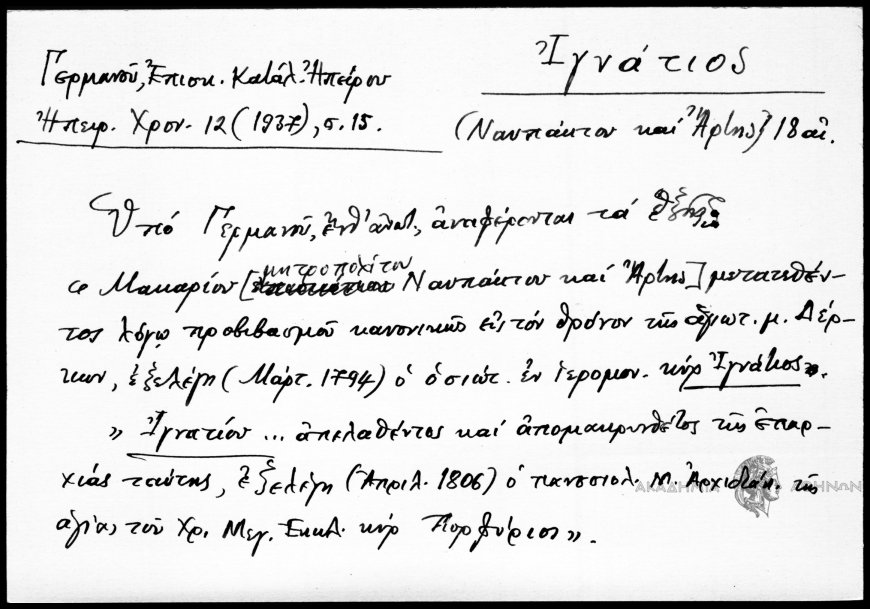 Ἰγνάτιος
(Ναυπάκτου καί Ἄρτης) 18 αἰ.
Γερμανοῦ, Ἐπισκ. Κατάλ. Ἠπείρου
Ἠπειρ. Χρον. 12 (1937), σ. 15.
Ὑπό Γερμανοῦ, ἔνθ' ἀνωτ., ἀναφέρονται τά ἑξῆς
« Μακαρίου [μητροπολίτου Ναυπάκτου καί Ἄρτης] μετατεθέν-
τος λόγῳ προβιβασμοῦ κανονικῶς εἰς τόν θρόνον τῆς ἁγιωτ. μ. Δέρ-
κων, ἐξελέγη (Μάρτ. 1794) ὁ ὁσιώτ. ἐν ἱερομον. κύρ Ἰγνάτιος».
» Ἰγνατίου ... ἀπελαθέντος καί ἀπομακρυνθέντος τῆς ἐπαρ-
χίας ταύτης, ἐξελέγη (Ἀπριλ. 1806) ὁ πανοσιολ. Μ. Ἀρχιδιάκ. τῆς
ἁγίας τοῦ Χρ. Μεγ. Ἐκκλ. κύρ Πορφύριος».
ΑΚΑΔΗΜΙΑ ΑΘΗΝΩΝ